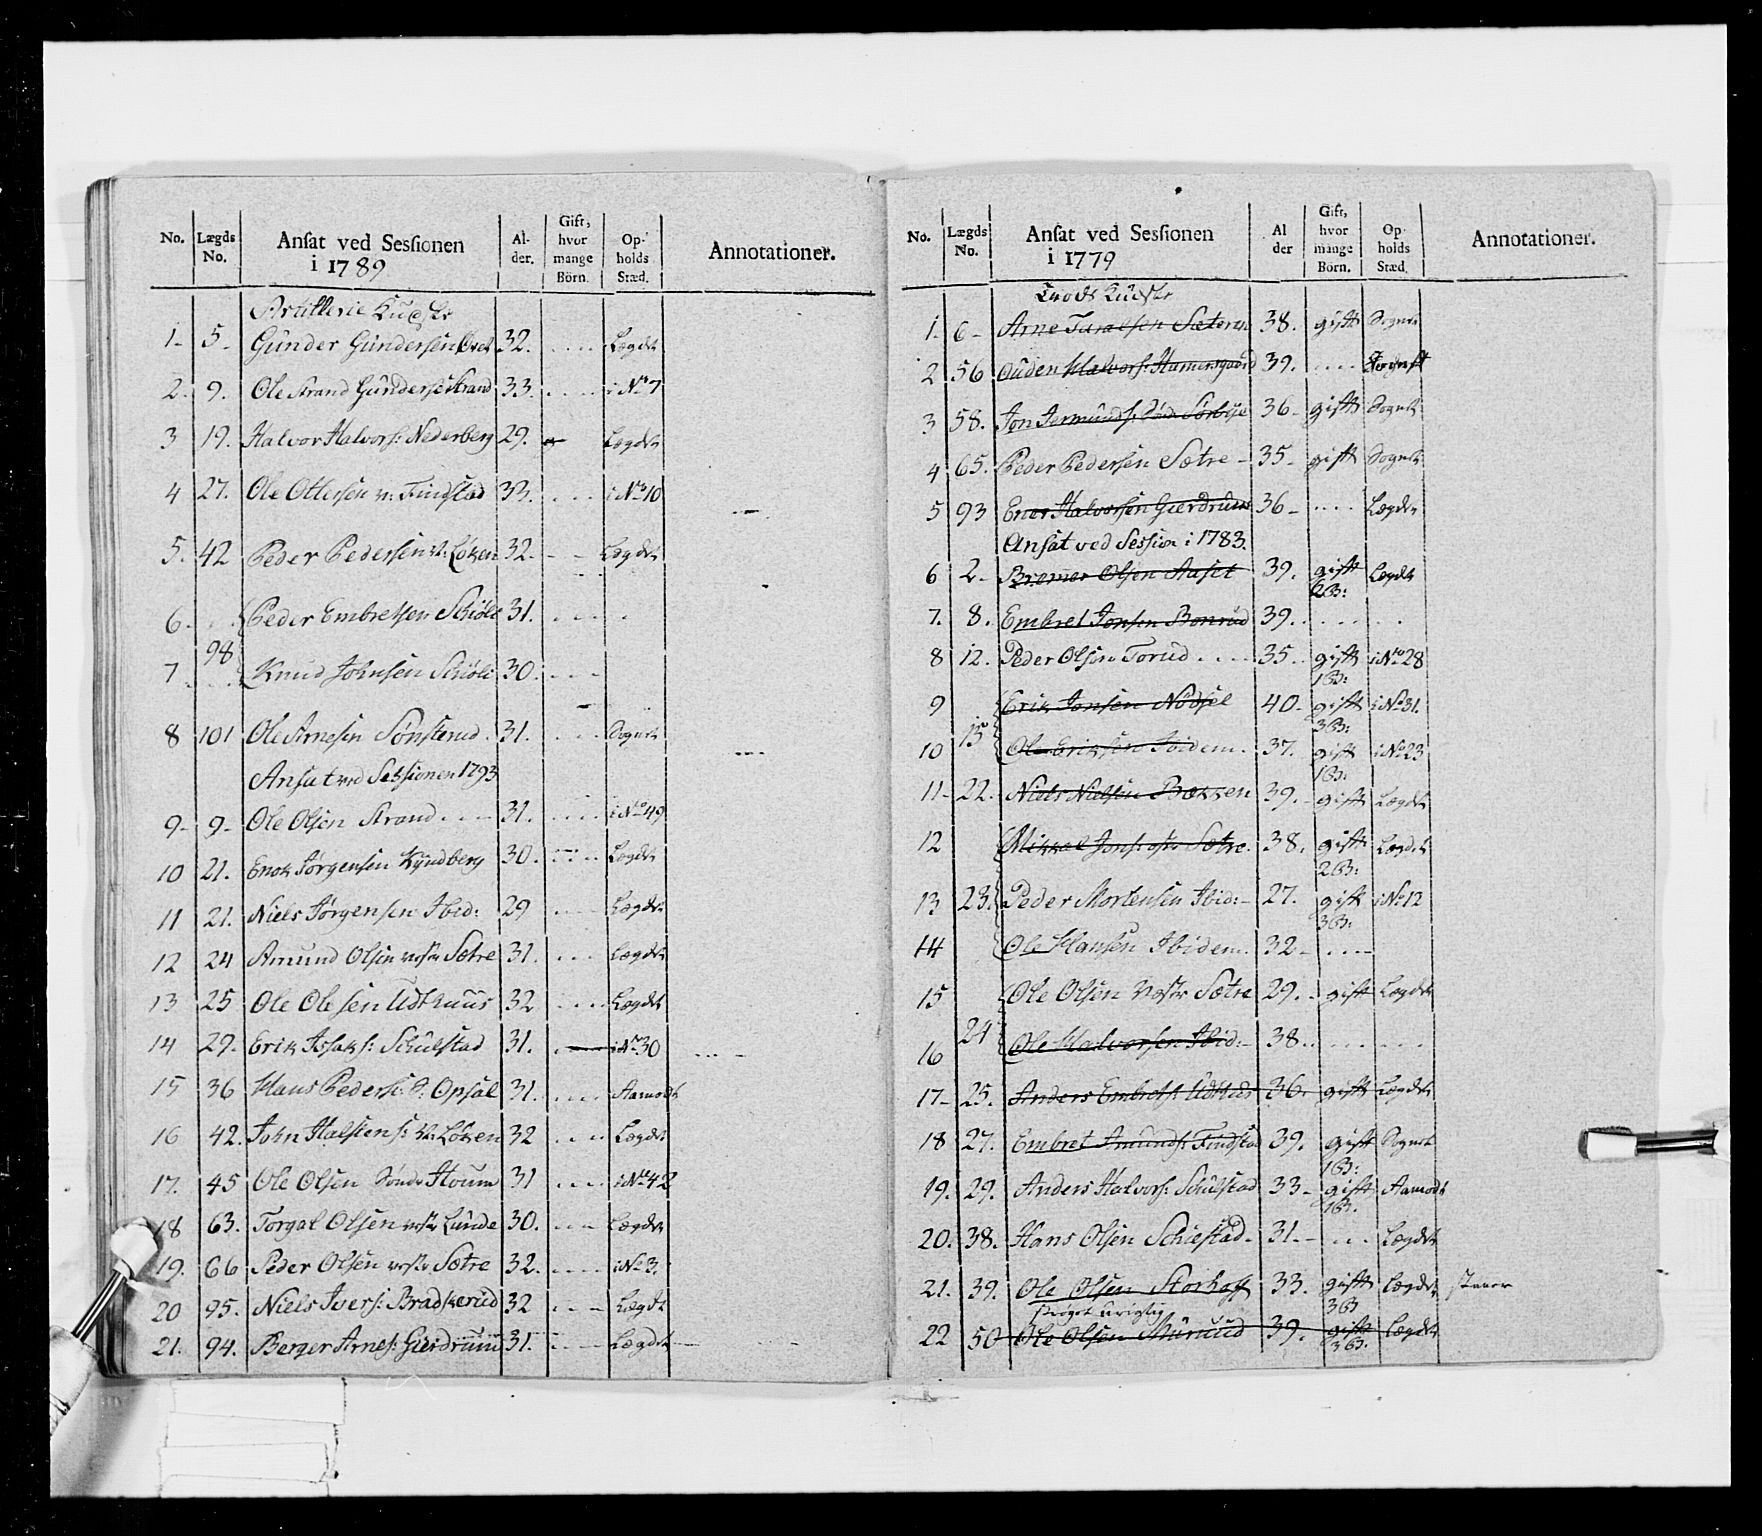 No. Lægds No. Ansat ved Sessionen i 1789 Al- der. Gift, hvor mange Börn. Op- holds Stæd. Annotationer.
Artillerie Kudske
1- 5- Gunder Gundersen 32. .... Lægdet
2. 9. Ole Strand Gunderse Strand 33. .... i No 7
3 19. Halvor Halvors: Nederberg 29. Lægdet
4 27. Ole Ottersen v: Findstad 33. .... i No 10
5. 42 Peder Pedersen v: Løken 32. - - Lægdet
6. Peder Embretsen Schiöle 31. ....
98
7 Knud Johnsen Schiöle 30. ...
8 101 Ole Arnesen Sønsterud . 31. ... Sognet
Ansat ved Sessionen 1793
9- 9- Ole Olsen Strand .... 31. .... i No 49
10 21. Enok Jørgensen Kyndberg 30. .... Lægdet
11 21. Niels Jørgensen Ibid: 29 .... Lægdet
12 24 Amund Olsen vestr Sætre 31. ... Lægdet
13 25 Ole Olesen Udthuus 32 .... Lægdet
14 29. Erik Isaks: Schulstad 31. i No 30
15 36 Hans Peders: S: Opsal 31. .... Aamodt
16 42. John Halstens: v: Løken 32 .... Lægdet
17. 45 Ole Olsen Søndr Houm 31 .... i No 42
18 63. Torgal Olsen vestr Lunde 30. ... Lægdet
19. 66 Peder Olsen vestr Sætre 32. .... i No 3.
20 95. Niels Ivers: Bradskerud 32 ... Lægdet
21. 94. Berger Arnes: Gierdrum 31. .... Lægdet
No. Lægds No. Ansat ved Sessionen i 1779 Al der Gift, hvor mange Börn. Op- holds Stæd. Annotationer.
Kudske
1. 6- Arne Sæteren 38. gift Sognet
2 56 Ouden Halvors: Hammersgaard 39. ....
3 58. Jon Sörbye 36- gift Sognet
4 65. Peder Pedersen Sætre - 35- gift Sognet
5 93 Halvorsen Gierdrum 36- .... Lægdet
Ansat ved Session i 1783.
6 2- Olsen Aaset 39. gift 2B: Lægdet
7. 8. Embret Jonsen Bonrud 39. ....
8 12. Peder Olsen Torud .... 35. gift 1B: i No 28
9 Erik Jonsen Nödsel 40- gift 3B: i No 31.
13
10 Ole Eriksen Ibidem. 37. gift 1B: i No 23
11- 22. Niels Nielsen Bækken 39. - gift Lægdet
12 Mikkel Jons: østr Sætre. 38. gift 2B: Lægdet
13 23. Peder Mortensen Ibid: - 27. gift 3B: i No 12
14 Ole Hansen Ibidem. 32- ....
15 Ole Olsen Vestr Sætre 29. . gift Lægdet
24
16 Ole Halvorsen Ibid: - 38. ....
17- 25. Anders Embrets: Udthus 36. gift Lægdet
18 27. Embret Amunds: Findstad 39. gift 1B: Sognet
19. 29. Anders Halvors: Schulstad 33- gift 1B. Aamodt
20. 38. Hans Olsen Schiestad- 31. - ... Lægdet
21. 39. Ole Olsen Storhoff 33. gift 3B Lægdet
strøget urigtig
22 50 Ole Olsen 39. gift 3B. Lægdet